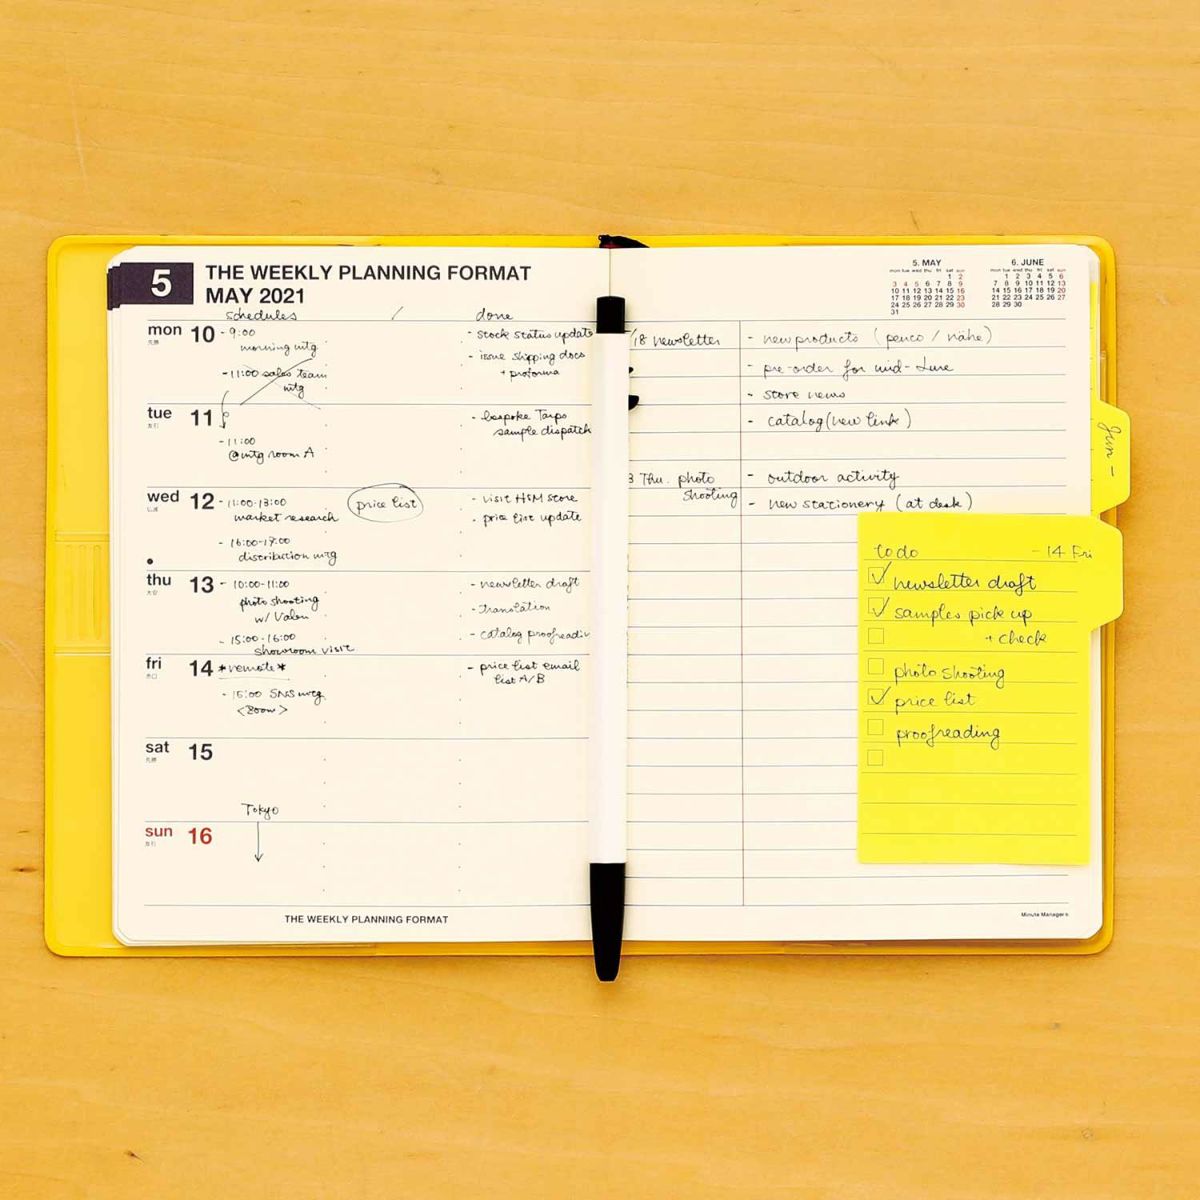 5
THE WEEKLY PLANNING FORMAT
MAY 2021
schedules / done
mon 10
先勝
- 9:00
morning mtg
- 11:00 sales team
mtg
- stock status update
- issue shipping docs
+ proforma
tue 11
友引
- 11:00
@mtg room A
- bespoke Tarps
sample dispatch
wed 12
仏滅
- 11:00-13:00
market research
price list
- 16:00-17:00
distribution mtg
- visit HSM store
- price list update
thu 13
大安
- 10:00-11:00
photo shooting
w/ Valon
- 15:00-16:00
showroom visit
- newsletter draft
- translation
- catalog proofreadin
fri 14
赤口
*remote*
- 15:00 SNS mtg
<zoom>
- price list email
list A/B
sat 15
先勝
Tokyo
sun 16
友引
THE WEEKLY PLANNING FORMAT
5. MAY
mon tue wed thu fri sat sun
1 2
3 4 5 6 7 8 9
10 11 12 13 14 15 16
17 18 19 20 21 22 23
24 25 26 27 28 29 30
31
6. JUNE
mon tue wed thu fri sat sun
1 2 3 4 5 6
7 8 9 10 11 12 13
14 15 16 17 18 19 20
21 22 23 24 25 26 27
28 29 30
/18 newsletter
- new products (penco / nähe)
- pre-order for mid-June
- store news
- catalog (new link)
3 Thu. photo
shooting
- outdoor activity
- new stationery (at desk)
Jun -
to do - 14 Fri
newsletter draft
samples pick up
+ check
photo shooting
price list
proofreading
Minute Manager's